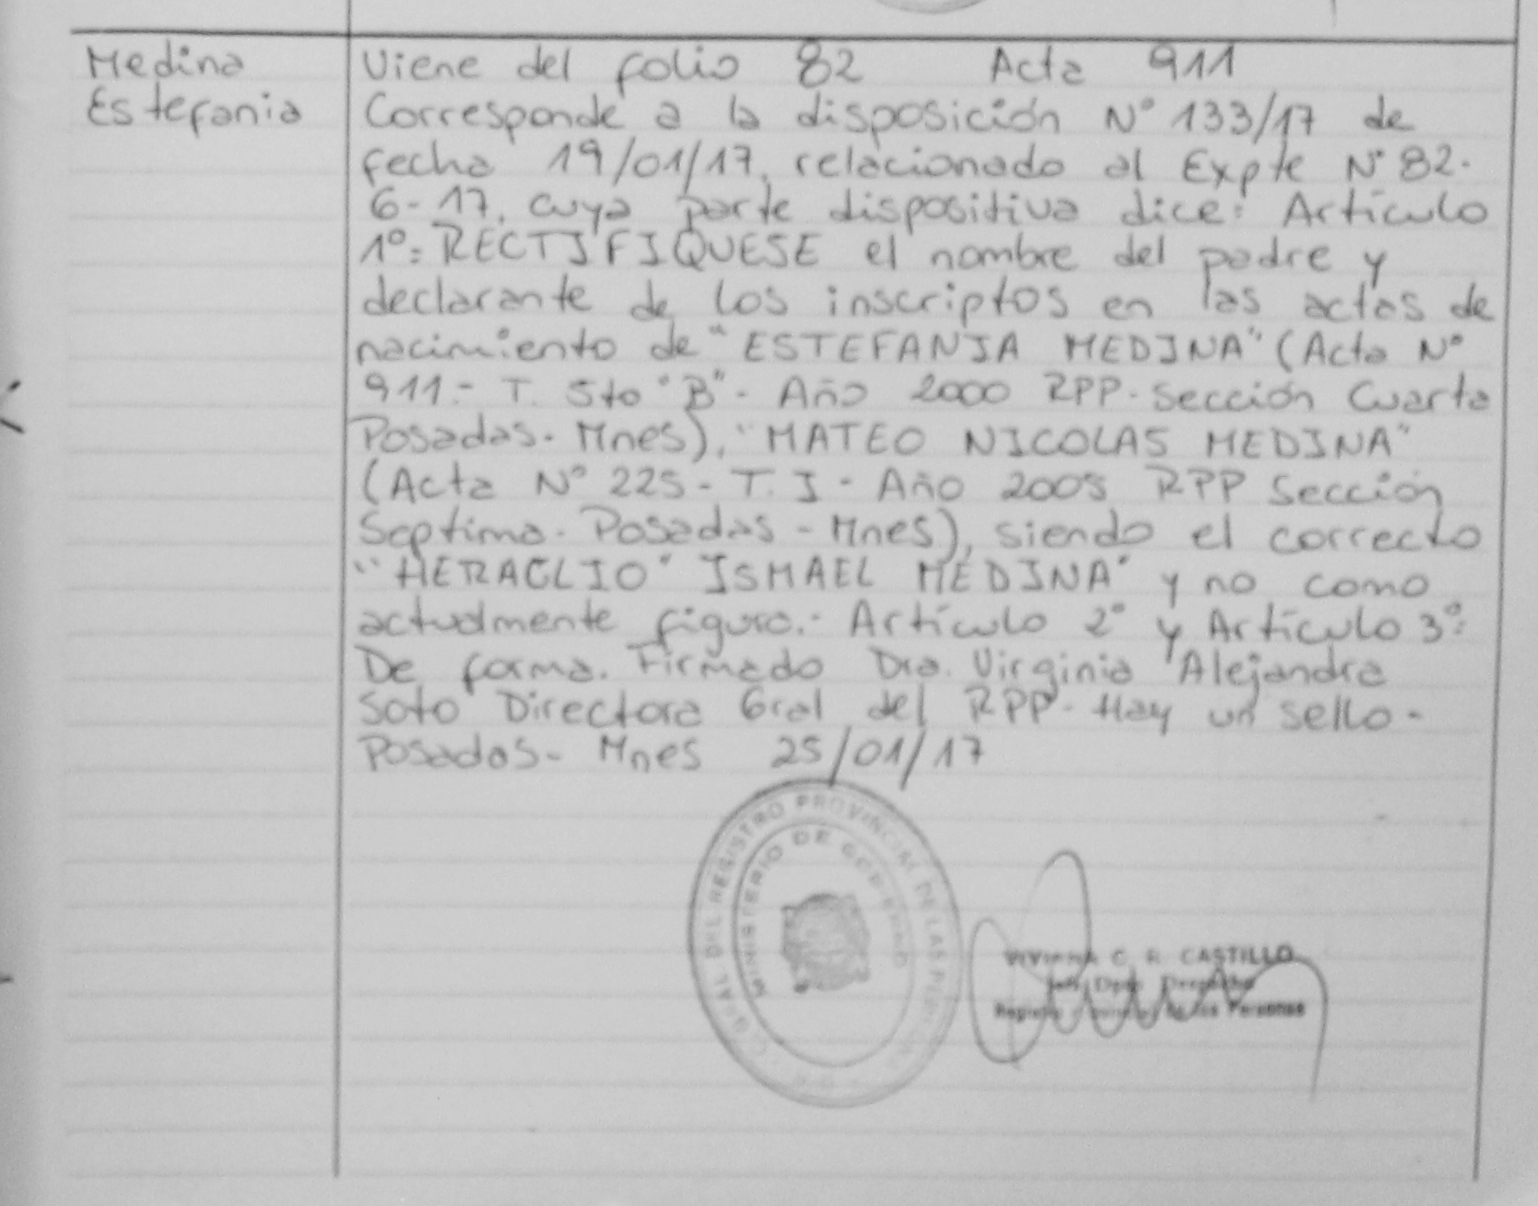 Medina
Estefania
Viene del folio 82 Acta 911
Corresponde a la disposición N° 133/17 de
fecha 19/01/17, relacionado al Expte N° 82-
6-17, cuya parte dispositiva dice: Artículo
1°: RECTIFIQUESE el nombre del padre y
declarante de los inscriptos en las actas de
nacimiento de "ESTEFANIA MEDINA" (Acta N°
911.- T. 5to "B"- Año 2000 RPP- Sección Cuarta
Posadas- Mnes), "MATEO NICOLAS MEDINA"
(Acta N° 225- T. I - Año RPP Sección
Septima- Posadas - Mnes), siendo el correcto
"HERACLIO" ISMAEL MEDINA" y no como
actualmente figura.- Artículo 2° y Artículo 3°:
De forma. Firmado Dra. Virginia Alejandra
Soto Directora Gral del RPP- Hay un sello-
Posadas- Mnes 25/01/17
GRAL DEL REGISTRO PROVINCIAL DE LAS PERSONAS
MINISTERIO DE GOBIERNO
VIVIANA C. R. CASTILLO
Jefe Dpto. Despacho
de las Personas